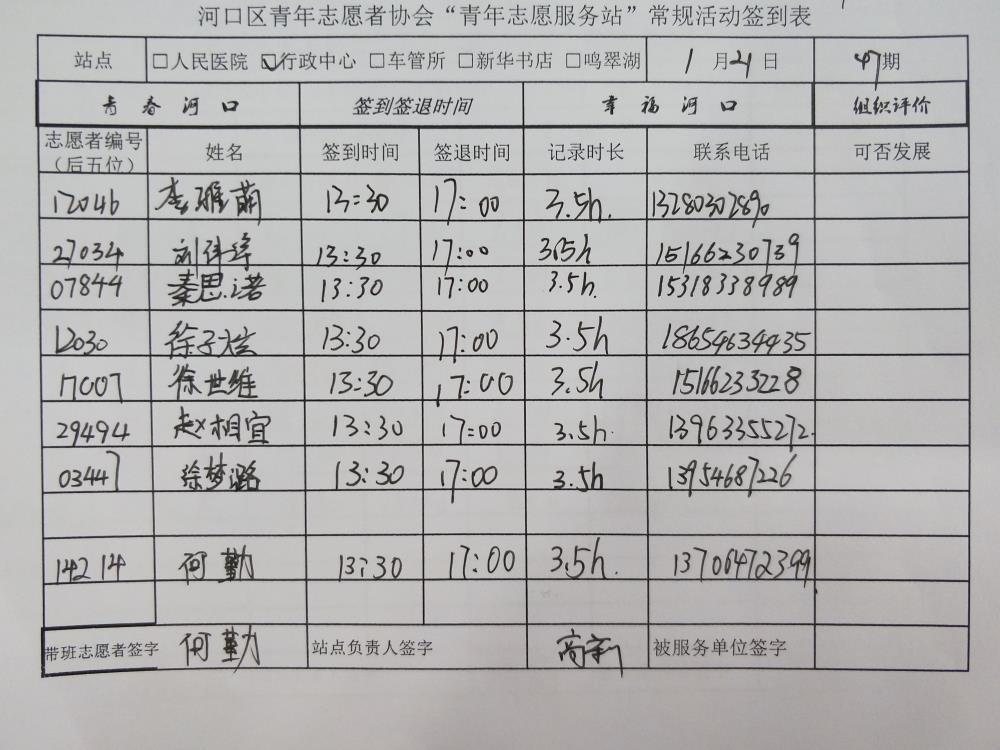 河口区青年志愿者协会“青年志愿服务站”常规活动签到表
站点 □人民医院 ☑行政中心 □车管所 □新华书店 □鸣翠湖 1月21日 47期
青春河口 签到签退时间 幸福河口 组织评价
志愿者编号（后五位） 姓名 签到时间 签退时间 记录时长 联系电话 可否发展
12046 李雅萌 13:30 17:00 3.5h. 13280302890
27034 刘 13:30 17:00 3.5h 15166230739
07844 秦思诺 13:30 17:00 3.5h. 15318338989
12030 徐子 13:30 17:00 3.5h 18654634435
17007 徐世维 13:30 17:00 3.5h 15166233228
29494 赵相宜 13:30 17:00 3.5h. 13963355272.
03447 徐梦潞 13:30 17:00 3.5h 13954687226
14214 何勤 13:30 17:00 3.5h. 13706472399
带班志愿者签字 何勤 站点负责人签字 商新 被服务单位签字